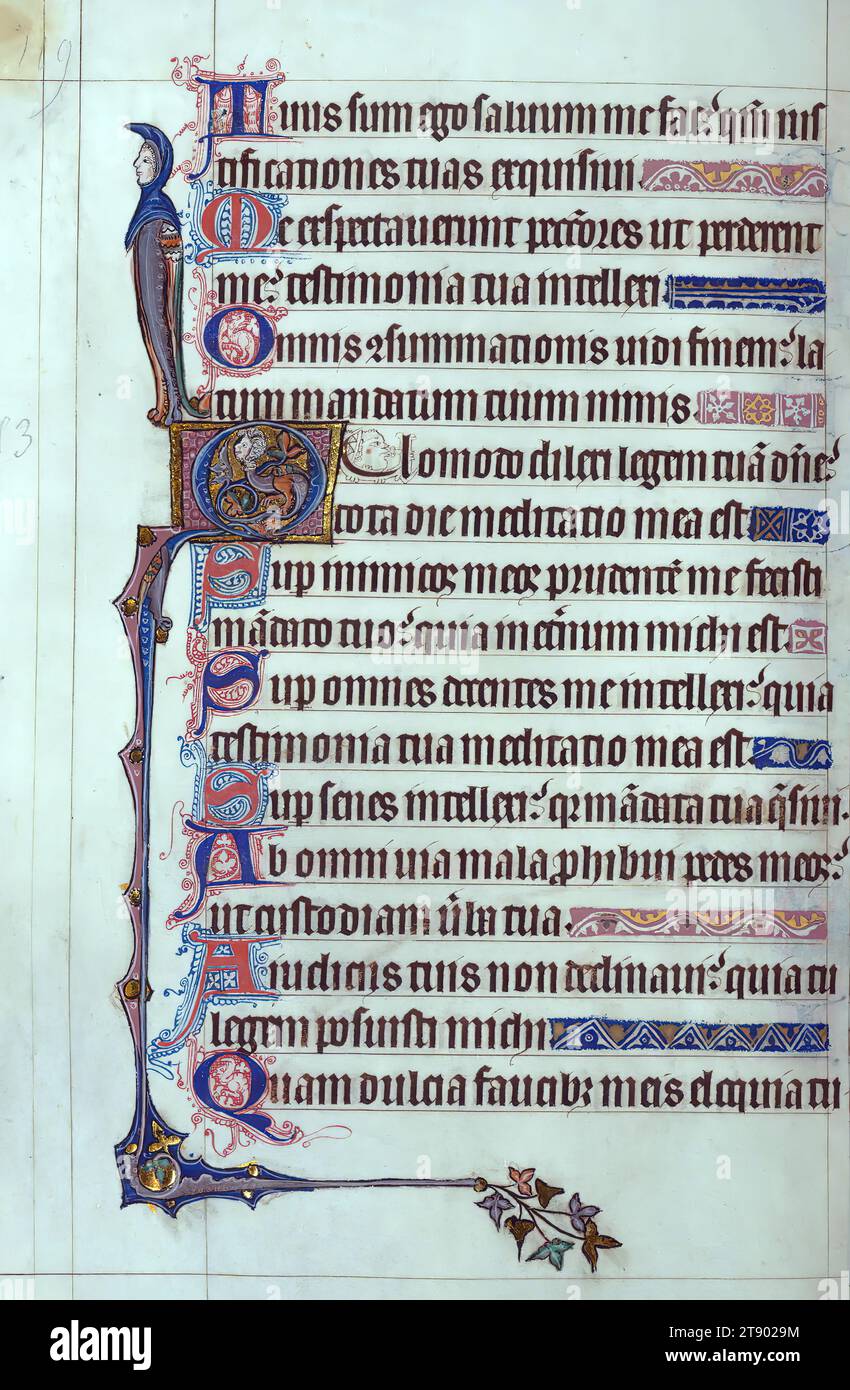 119
Tuus sum ego saluum me fac? qm̄ ius
tificationes tuas exquisiui
Me exspectauerunt pecc̄ores ut perderent
me? testimonia tua intellexi
Omnis ꝯsummationis uidi finem? la
tum mandatum tuum nimis
Quomodo dilexi legem tuā dn̄e?
tota die meditatio mea est
Sup inimicos meos prudentē me fecisti
mādato tuo? quia in et̄num michi est
Sup omnes docentes me intellexi? quia
testimonia tua meditatio mea est
Sup senes intellexi? qr mādata tua q̄siui.
Ab omni uia mala ꝓhibui pedes meos?
ut custodiam ūba tua.
A iudiciis tuis non declinaui? quia tu
legem posuisti michi
Quam dulcia faucibꝫ meis eloquia tu
alamy
Image ID: 2T9029M
www.alamy.com